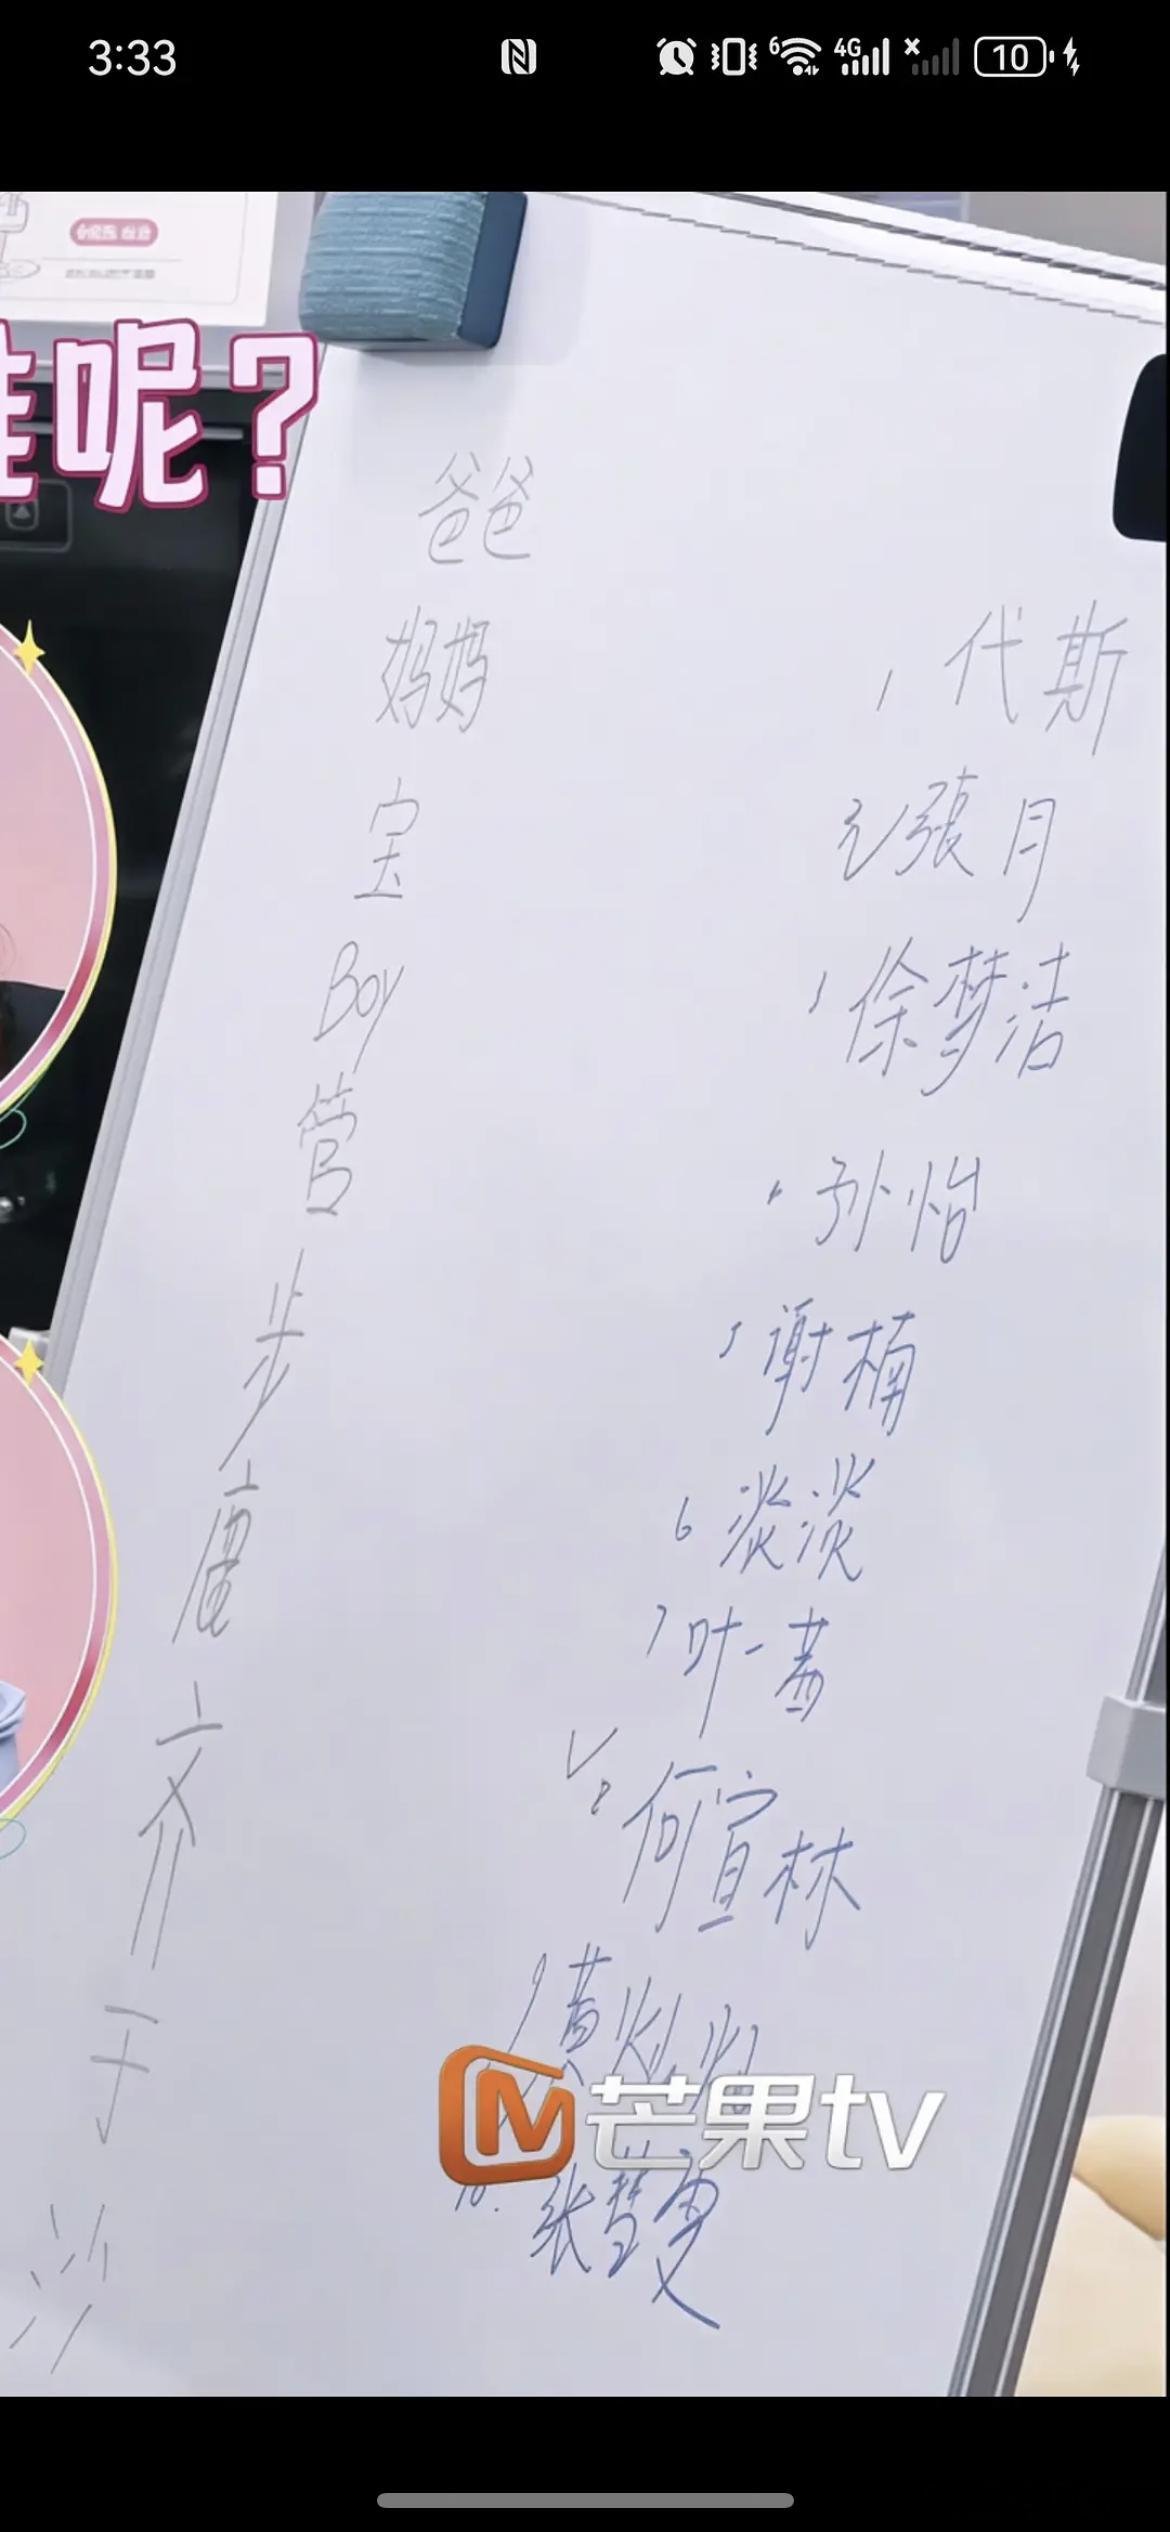 3:33
6
4G
10
呢?
爸爸
妈妈
宝
Boy
管
步
齐
于
沙
1 代斯
2 張月
3 徐梦洁
4 孙怡
5 谢楠
6 淡淡
7 叶一茜
8 何宣林
9 黄灿灿
10. 张慧雯
芒果tv